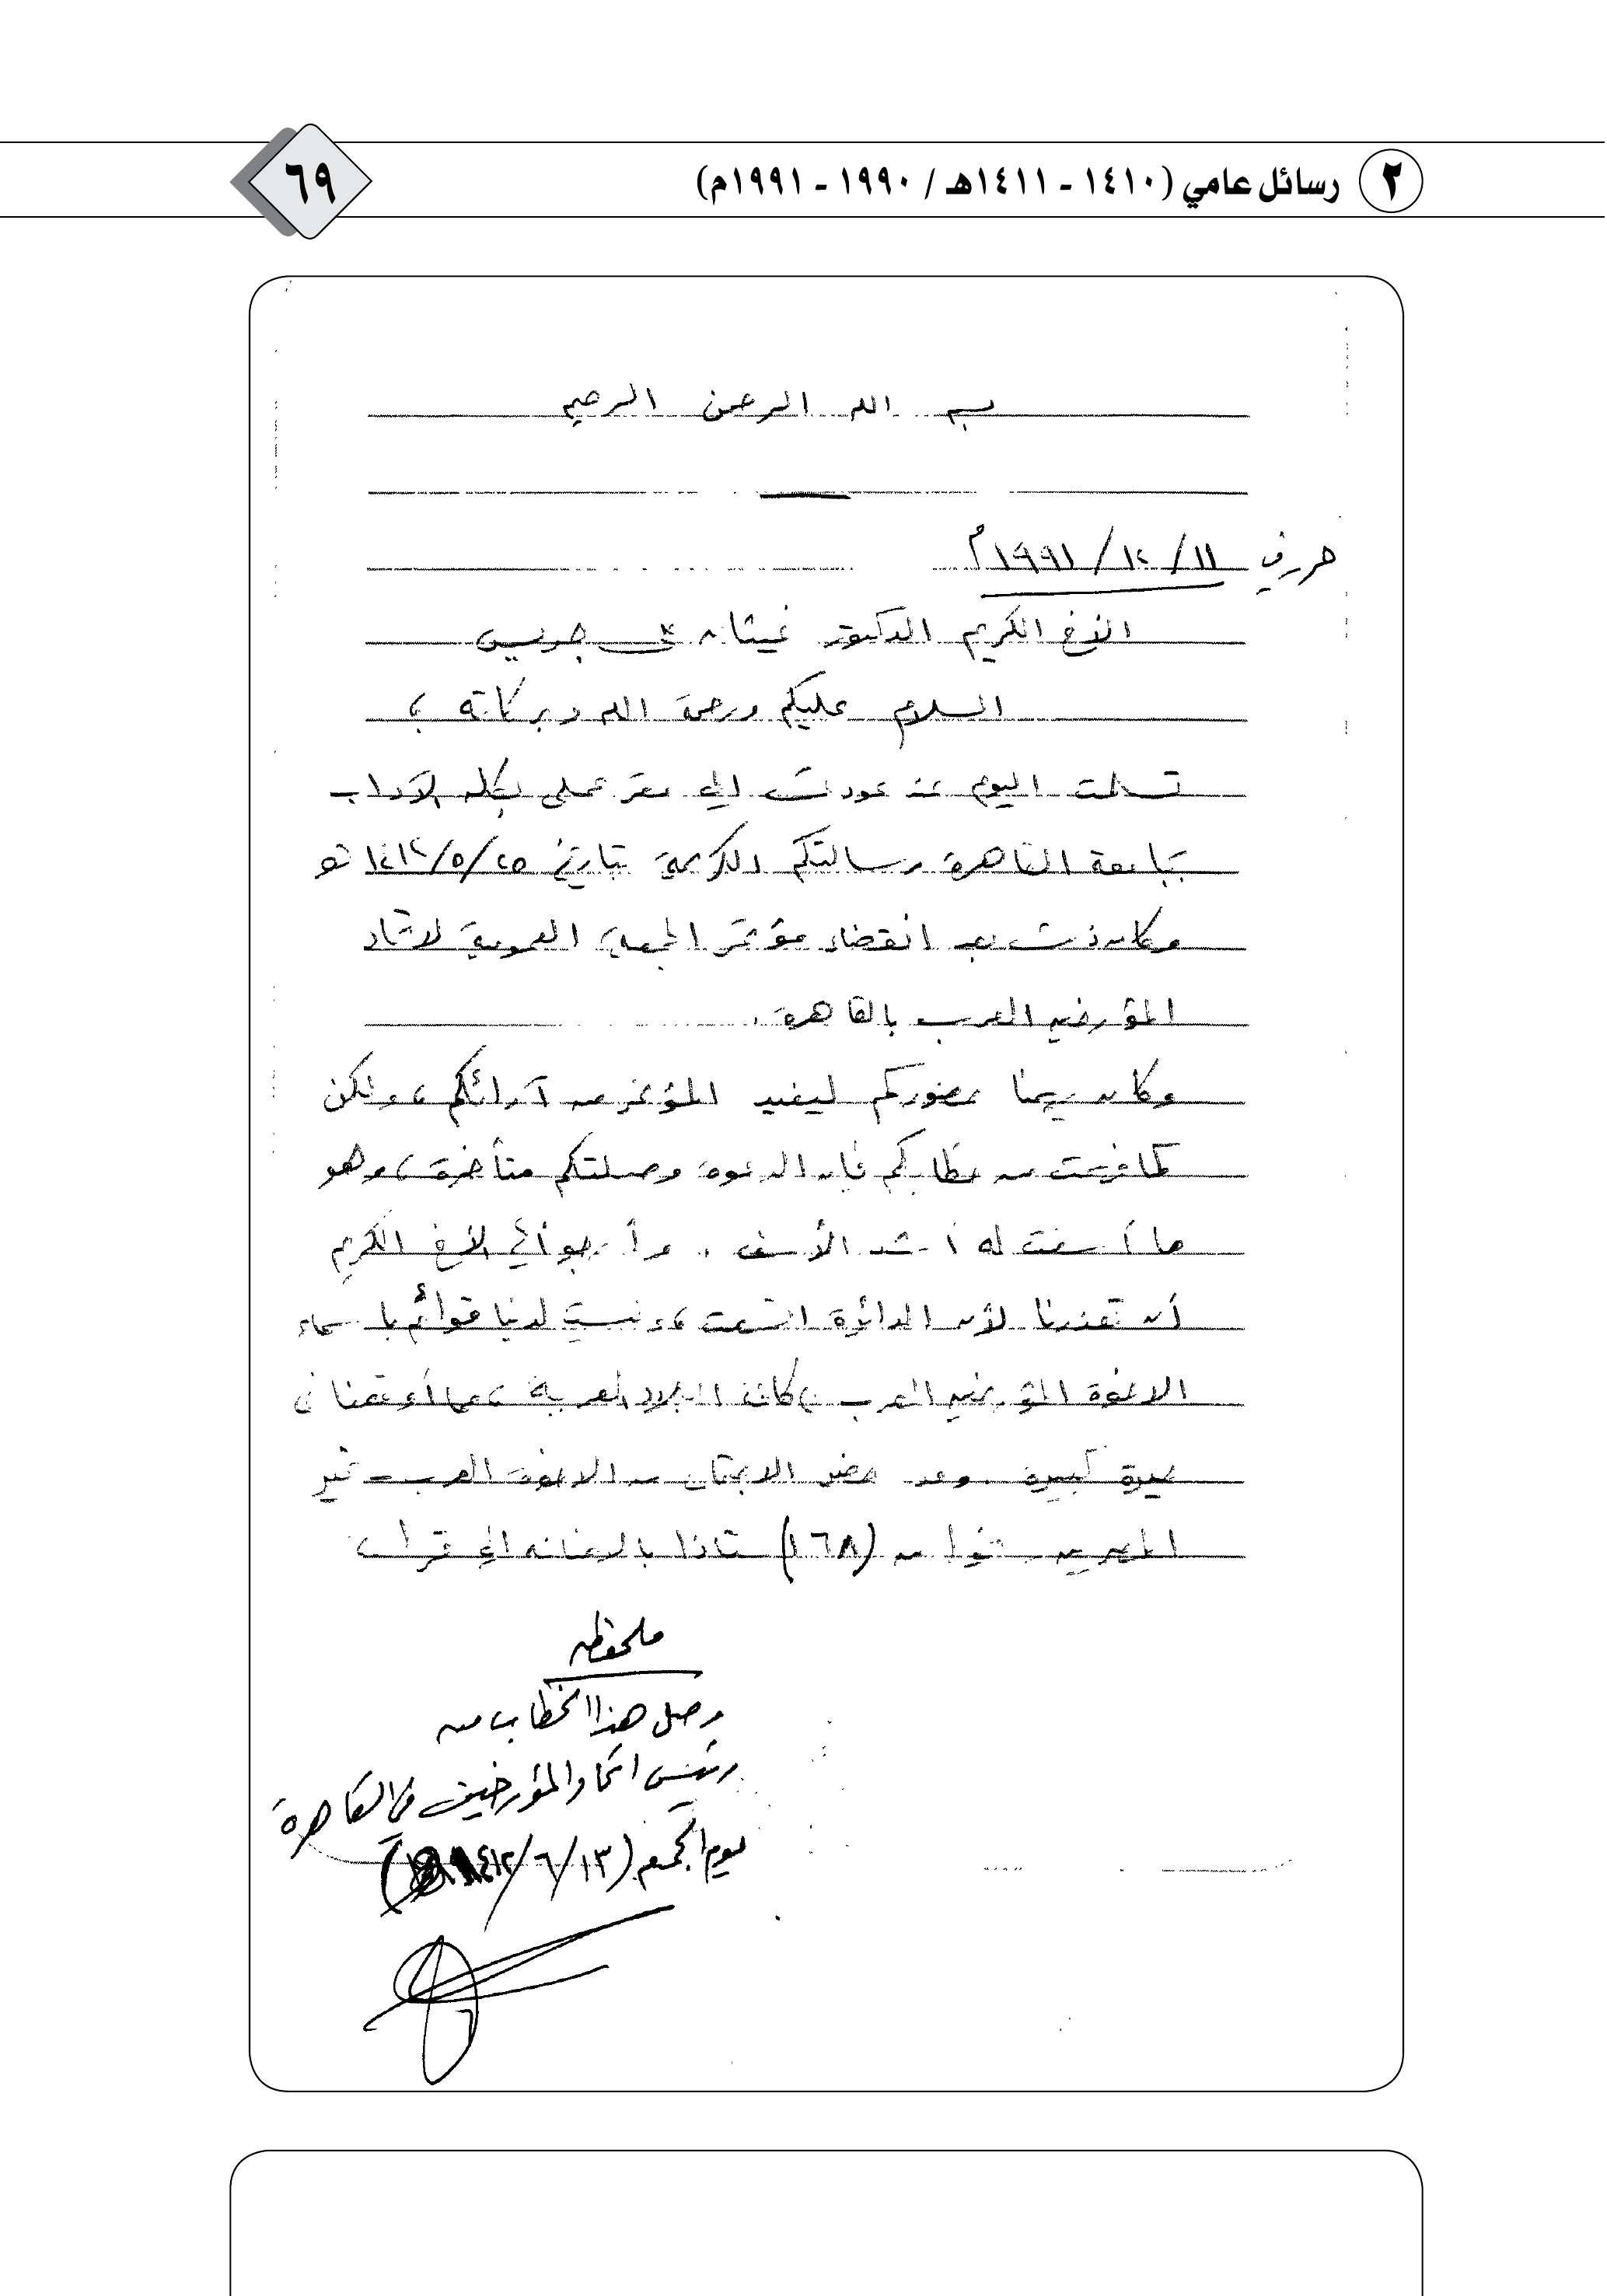 ٢ رسائل عامي (١٤١٠ - ١٤١١هـ / ١٩٩٠ - ١٩٩١م)
٦٩
بسم الله الرحمن الرحيم
حرر في ١١/١٢/١٩٩١م
الأخ الكريم الدكتور غيثان على جريس
السلام عليكم ورحمة الله وبركاته ؛
تسلمت اليوم عند عودتى الى مقر عملى بكلية الآداب
بجامعة القاهرة رسالتكم الكريمة بتاريخ ٢٥/٥/١٤١٢
وكان ذلك بعد انقضاء مؤتمر الجمعية العمومية لاتحاد
المؤرخين العرب بالقاهرة .
وكان يهمنا حضوركم ليفيد المؤتمر من آرائكم ، ولكن
كما فهمت من خطابكم فإن الدعوة وصلتكم متأخرة ، وهو
ما أسفت له أشد الأسف . وأرجو أخى الأخ الكريم
أن تعذرنا لأن الدائرة اتسعت ، وليست لدينا قوائم بأسماء
الاخوة المؤرخين العرب فى كافة البلاد العربية ، مما أوقعنا فى
حيرة كبيرة . وقد حضر الاجتماع من الاخوة العرب - غير
المصريين - نحوا من (١٦٨) أستاذا بالاضافة الى
ملحوظه
وصل هذا الخطاب من
رئيس اتحاد المؤرخين في القاهرة
يوم الجمعه (١٣/٦/١٤١٢